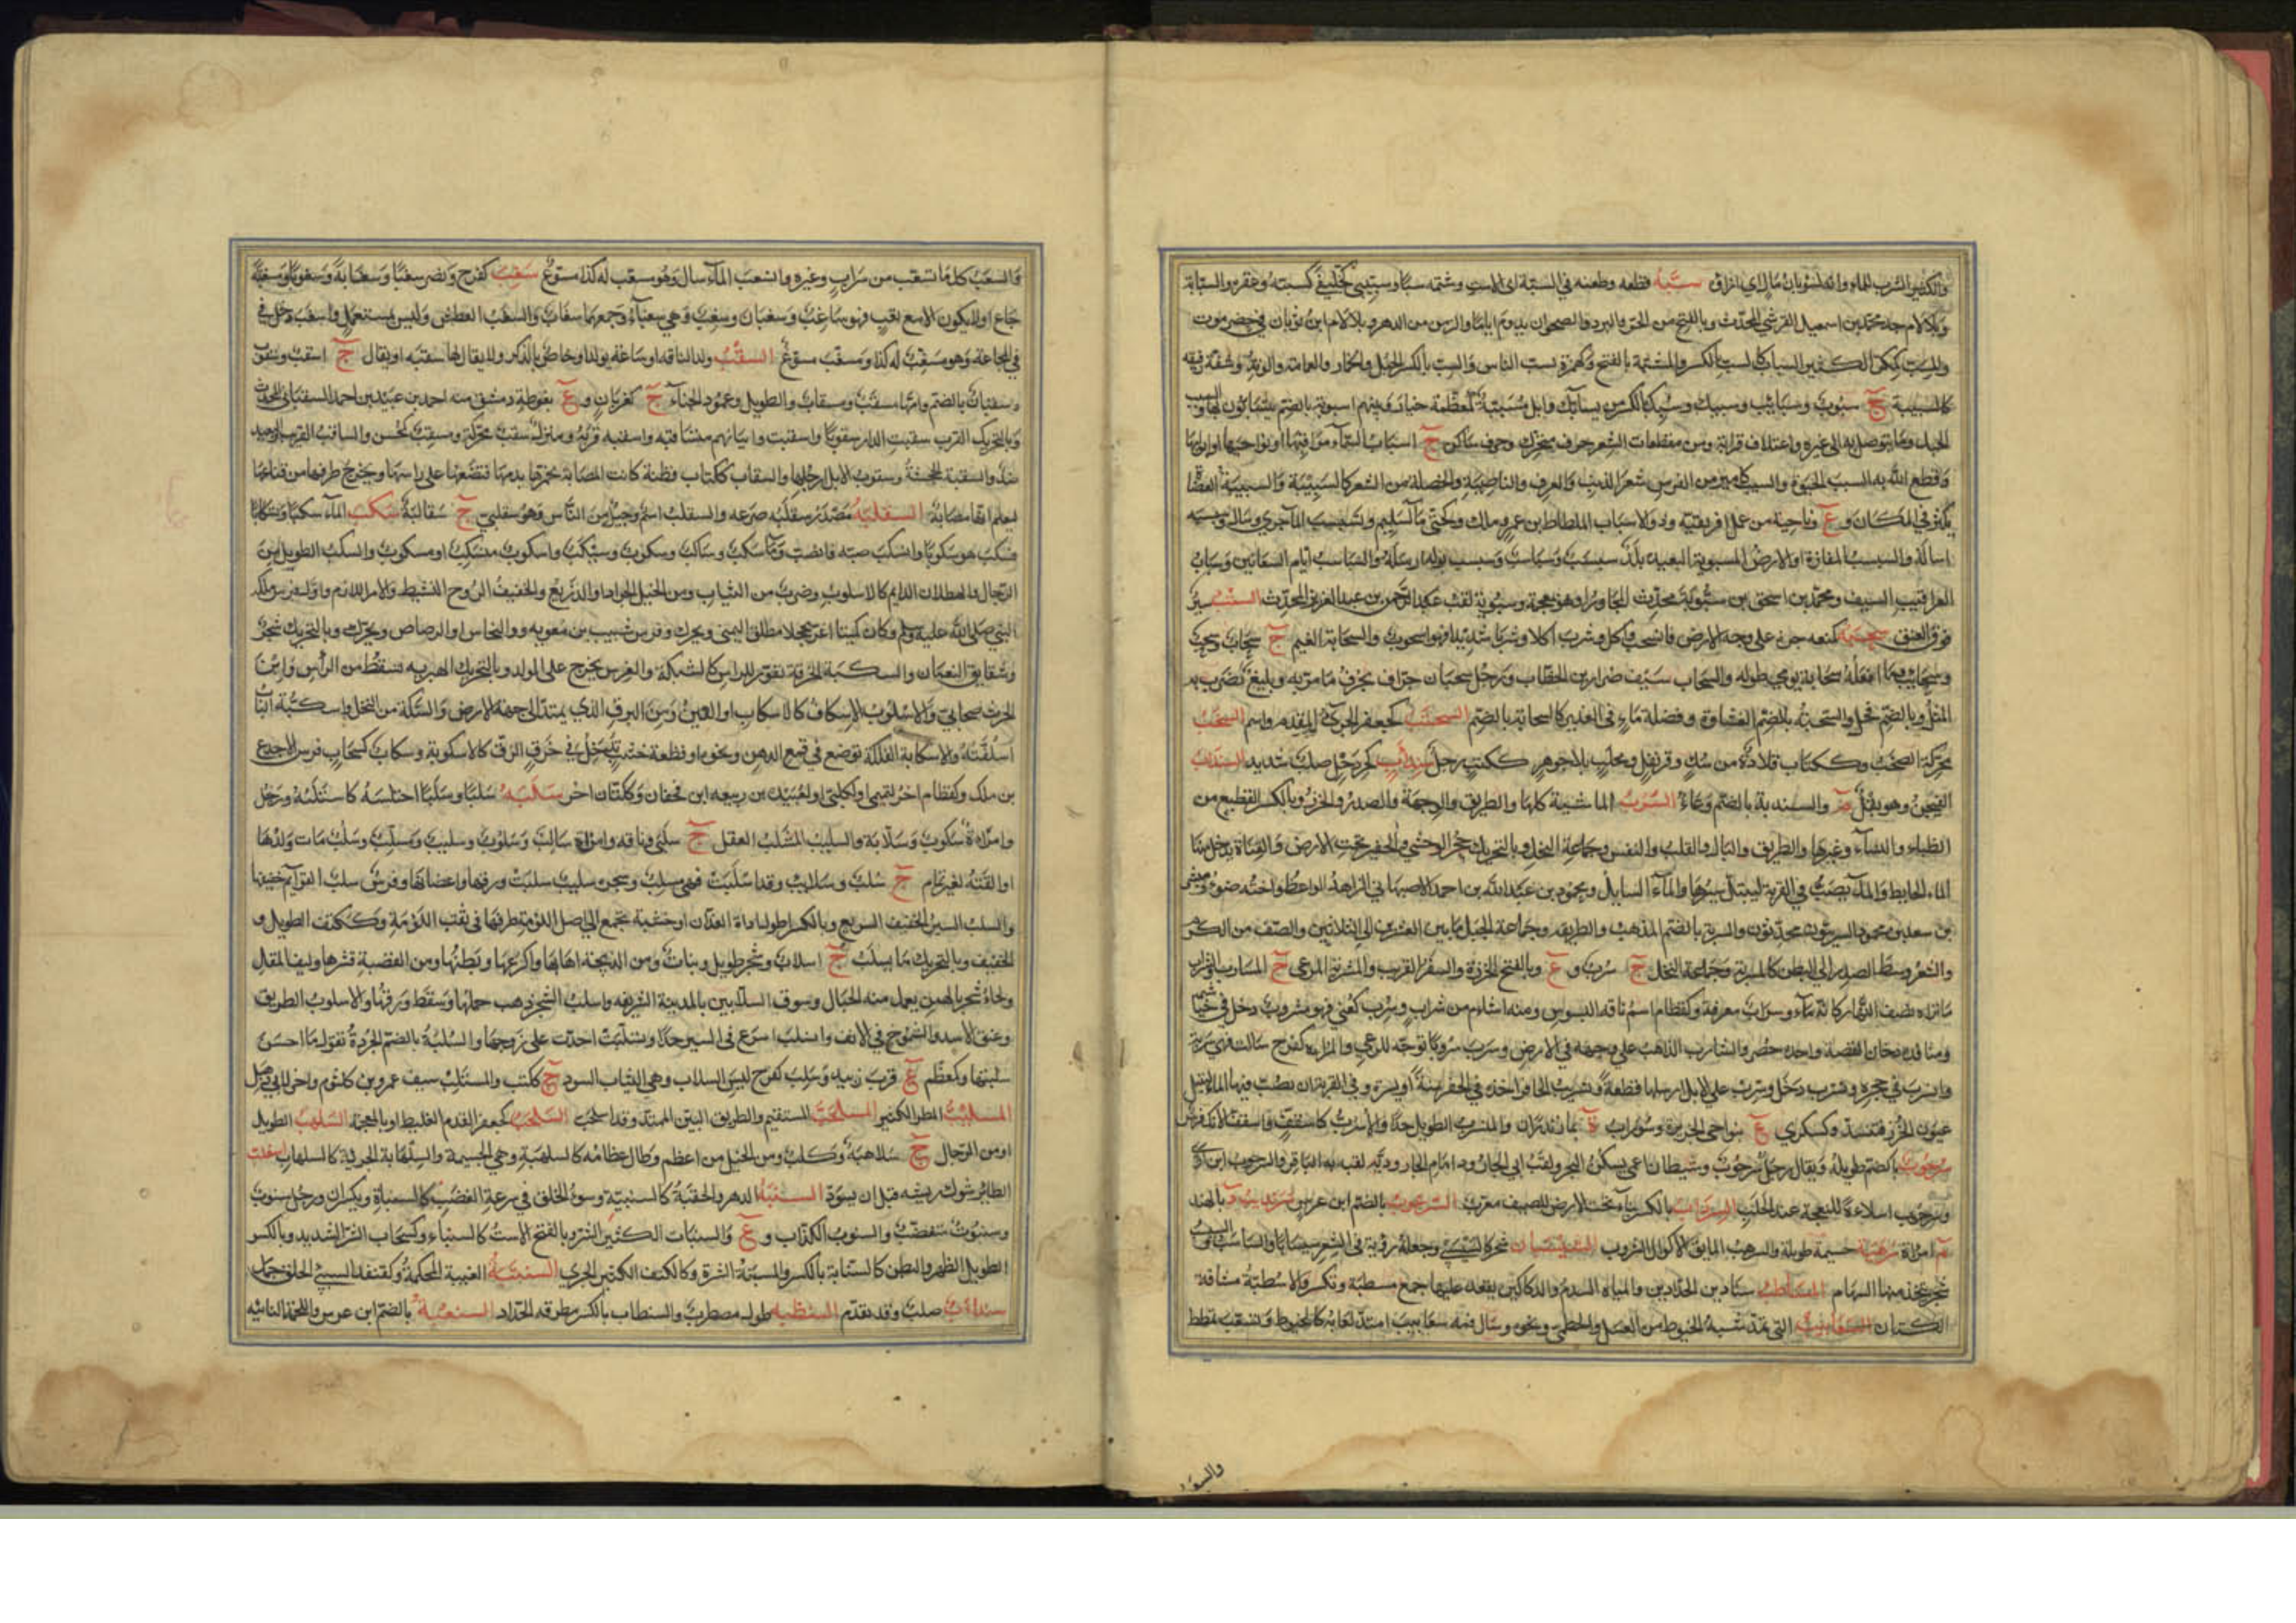 والكثير الشرب للماء وانه لسؤبان مال اي ازاؤه سبّه قطعه وطعنه في السبة اى الاست وشتمه سبّا وسبّيبى كخلّيفى كسبّبه وعقره والسبّابة
وبلا لام جد محمد بن اسمعيل القرشي المحدث وبالفتح من الحر والبرد والصحو ان يدوم اياما والزمن من الدهر وبلا لام ابن ثوبان في حضرموت
والمسبّ كمكرّ الكثير السباب كالسبّ بالكسر والمسبّة بالفتح وكهمزة يسب الناس والسبّ بالكسر الحبل والخمار والعمامة والوتد وشقّة رقيقة
كالسبيبة ج سبوب وسبائب وسبيبك وسبّك بالكسر من يسابّك وابل مسبّبة كمعظّمة خيار وبينهم اسبوبة بالضم يتسابّون بها والسبب
الحبل وما يتوصل به الى غيره واعتلاق قرابة ومن مقطعات الشعر حرف متحرك وحرف ساكن ج اسباب السماء مراقيها او نواحيها او ابوابها
وقطع الله به السبب الحيوة والسبيب كامير من الفرس شعر الذنب والعرف والناصية والخصلة من الشعر كالسبيبة والسبيبة العضاه
يكثر في المكان و ع وناحية من عمل افريقية وذو الاسباب الملطاط بن عمرو ملك وكحتّى ماء لسليم وتسبسب الماء جرى وسال وسبسبه
اساله والسبسب المفازة او الارض المستوية البعيدة بلد سبسب وسباسب وسبسب بوله ارسله والسباسب ايام السعانين وسبّاب
العراقيب السيف ومحمد بن اسحق بن سبّوبة محدث المجاور او هو بمعجمة وسبوبة لقب عبد الرحمن بن عبد العزيز المحدث السّتب سير
فوق العنق سحبه كمنعه جره على وجه الارض فانسحب واكل وشرب اكلا وشربا شديدا فهو اسحوب والسحابة الغيم ج سحاب وسحب
وسحائب وما افعله سحابة يومي طوله والسحاب سيف ضرار بن الخطاب ورجل سحبان جرّاف يجرف ما مر به وبليغ يضرب به
المثل وبالضم فحل والسحبة بالضم الغشاوة وفضلة ماء في الغدير كالسحابة بالضم السحتب كجعفر الجريء المقدم واسم السخب
محركة الصخب وككتاب قلادة من سك وقرنفل ومحلب بلا جوهر ككتب رجل سندأب كجردحل صلب شديد السذاب
الفيجن وهو بقل م والسذبة بالضم وعاء السّرب الماشية كلها والطريق والوجهة والصدر والخرز وبالكسر القطيع من
الظباء والنساء وغيرها والطريق والبال والقلب والنفس وجماعة النخل وبالتحريك جحر الوحشي والحفير تحت الارض والقناة يدخل منها
الماء الحائط والماء يصب في القربة ليبتل سيرها والماء السائل ومحمود بن عبد الله بن احمد الاصبهاني الزاهد الواعظ واخته ضوء ومبشر
بن سعد بن محمود السربيون محدثون والسربة بالضم المذهب والطريقة وجماعة الخيل ما بين العشرين الى الثلاثين والصف من الكرم
والشعر وسط الصدر الى البطن كالمسربة وجماعة النخل ج سرب و ع وبالفتح الخرزة والسفر القريب والمسربة المرعى ج المسارب والسراب
ما تراه نصف النهار كانه ماء وسراب معرفة وكقطام اسم ناقة البسوس ومنه اشأم من سراب وسرب كعنى فهو مسروب دخل في خياشيمه
ومنافذه دخان الفضة واخذه حصر والسارب الذاهب على وجهه في الارض وسرب سروبا توجه للرعي والمزادة كفرح سالت فهي سربة
وانسرب في جحره وتسرب دخل وسرّب علي الابل ارسلها قطعة قطعة وتسريب الحافر اخذه في الحفر يمنة او يسرة وفي القربة ان تصب فيها الماء لتبتل
عيون الخرز فتنسد وكسكرى ع بنواحي الجزيرة وسوراب ة بمازندران والمنسرب الطويل جدا والأسرب كاسقف واسفف الآنك فرسى
سرحوب بالضم طويلة ويقال رجل سرحوب وشيطان اعمى يسكن البحر ولقب ابي الجارود امام الجارودية لقبه به الباقر والسرحوب ابن اوى
وسرحوب سرحوب اسلاء للنعجة عند الحلب السرداب بالكسر بناء تحت الارض للصيف معرب السرعوب بالضم ابن عرس سرنديب د بالهند
م امراة سرهبة جسيمة طويلة والسرهب المائق الاكول الشروب السيسبان شجر كالسيسبى وجعله رؤبة في الشعر سيسابا والساسب والسيسب
شجر يتخذ منها السهام المساطب سنادين الحدادين والمياه السدم والدكاكين يقعد عليها جمع مسطبة وتكسر والاسطبة مشاقة
الكتان السعابيب التي تمتد شبه الخيوط من العسل والخطمي ونحوه وسال فمه سعابيب امتد لعابه كالخيوط وتسعب تمطط
والسع
والسعب كل ما تسعب من شراب وغيره وانسعب الماء سال وهو مسعب له كذا مسوّغ سغب كفرح ونصر سغبا وسغبا وسغابة وسغوبا ومسغبة
جاع او لا يكون الا مع تعب فهو ساغب وسغبان وسغب وهي سغباء وجمعهما سغاب والسغب العطش وليس بمستعمل واسغب دخل في
في المجاعة وهو مسغب له كذا ومسغب مسوغ السقب ولد الناقة او ساعة يولد او خاص بالذكر ولا يقال لها سقبة او يقال ج اسقب وسقوب
وسقبان بالضم وامها مسقب ومسقاب والطويل وعمود الخباء ج كغربان و ع بغوطة دمشق منه احمد بن عبيد بن احمد السقباني المحدث
وبالتحريك القرب سقبت الدار سقوبا واسقبت وابياتهم متساقبة واسقبه قربه ومنزل سقب محركة ومسقب كمحسن والساقب القريب والبعيد
ضد والسقبة الجحشة وسقوب الابل ارجلها والسقاب ككتاب قطنة كانت المصابة تحمرها بدمها فتضعها على راسها وتخرج طرفها من قناعها
ليعلم انها مصابة السقلبة مصدر سقلبه صرعه والسقلب اسم وجيل من الناس وهو سقلبي ج سقالبة سكب الماء سكبا وتسكابا
فسكب هو سكوبا وانسكب صبه فانصب وماء سكب وساكب وسكوب وسيكب واسكوب منسكب او مسكوب والسكب الطويل من
الرجال والهطلان الدائم كالاسلوب وضرب من الثياب ومن الخيل الجواد والذريع والخفيف الروح النشيط والامر اللازم واول فرس ملكه
النبي صلى الله عليه وسلم وكان كميتا اغر محجلا مطلق اليمنى ويحرك وفرس شبيب بن معوية والنحاس او الرصاص ويحرك وبالتحريك شجر
وشقايق النعمان والسكبة الخرقة تقور للراس كالشبكة والغرس يخرج على الولد وبالتحريك الهبرية تسقط من الراس وابن
الحرث صحابي والاسكوب الاسكاف كالاسكاب او القين ومن البرق الذي يمتد الى جهة الارض والسكة من النخل واسكبّة الباب
اسكفته والاسكابة الفلكة توضع في قمع الدهن ونحوه او قطعة خشبة تدخل في خرق الزق كالاسكوبة وسكاب كسحاب فرس الاجدع
بن ملك وكقطام اخر لتميمى او لكلبى او لعبيدة بن ربيعه ابن قحفان وككتان اخر سلبه سلبا وسلبا اختلسه كاستلبه ورجل
وامراة سلبوت وسلابة والسليب المستلب العقل ج سلبى وناقة وامراة سالب وسلوب وسليب ومسلب وسلب مات ولدها
او القته لغير تمام ج سلب وسلائب وقد اسلبت فهي مسلب وشجر سليب سلبت ورقها واغصانها وفرس سلب القوائم خفيفها
والسلب السير الخفيف السريع وبالكسر اطول اداة الفدان او خشبة تجمع الى اصل اللؤمة طرفها في ثقب اللؤمة وككتف الطويل و
الخفيف وبالتحريك ما يسلب ج اسلاب وشجر طويل ونبات ومن الذبيحة اهابها واكرعها وبطنها ومن القصبة قشرها وليف المقل
ولحاء شجر باليمن يعمل منه الحبال وسوق السلابين بالمدينة الشريفه واسلب الشجر ذهب حملها وسقط ورقها والاسلوب الطريق
وعنق الاسد والشموخ في الانف وانسلب اسرع في السير جدا وتسلبت احدت على زوجها والسلبة بالضم الجردة تقول ما احسن
سلبتها وكمعظم ع قرب زبيد وسلب كفرح لبس السلاب وهي الثياب السود ج ككتب والمستلب سيف عمرو بن كلثوم واخر لابي دهبل
المسلئبّ المطر الكثير المسلحب المستقيم والطريق البين الممتد وقد اسلحب السلخب كجعفر القدم الغليظ او بالمعجمة السلهب الطويل
او من الرجال ج سلاهبة وككلب ومن الخيل ما عظم وطال عظامه كالسلهبة وهي الجسيمة والسلهابة الجريئة كالسلهاب
الطائر شوك ريشه قبل ان يسودّ السنبة الدهر والحقبة كالسنبتة وسوء الخلق في سرعة الغضب كالسنباة ويكسران ورجل سنوب
وسنبوت متغضب والسنوب الكذاب و ع والسنبات الكثير الشر وبالفتح الاست كالسنباء وكسحاب الشر الشديد وبالكسر
الطويل الظهر والبطن كالسنابة بالكسر والمسنبة الشرة وككتف الكثير الجري السنتبة الغيبة المحكمة وكقنفذ السيئ الخلق
سندأب صلب وقد تقدم السنطبة طول مضطرب والسنطاب بالكسر مطرقه الحداد السنعبة بالضم ابن عرس واللحمة الناتئة